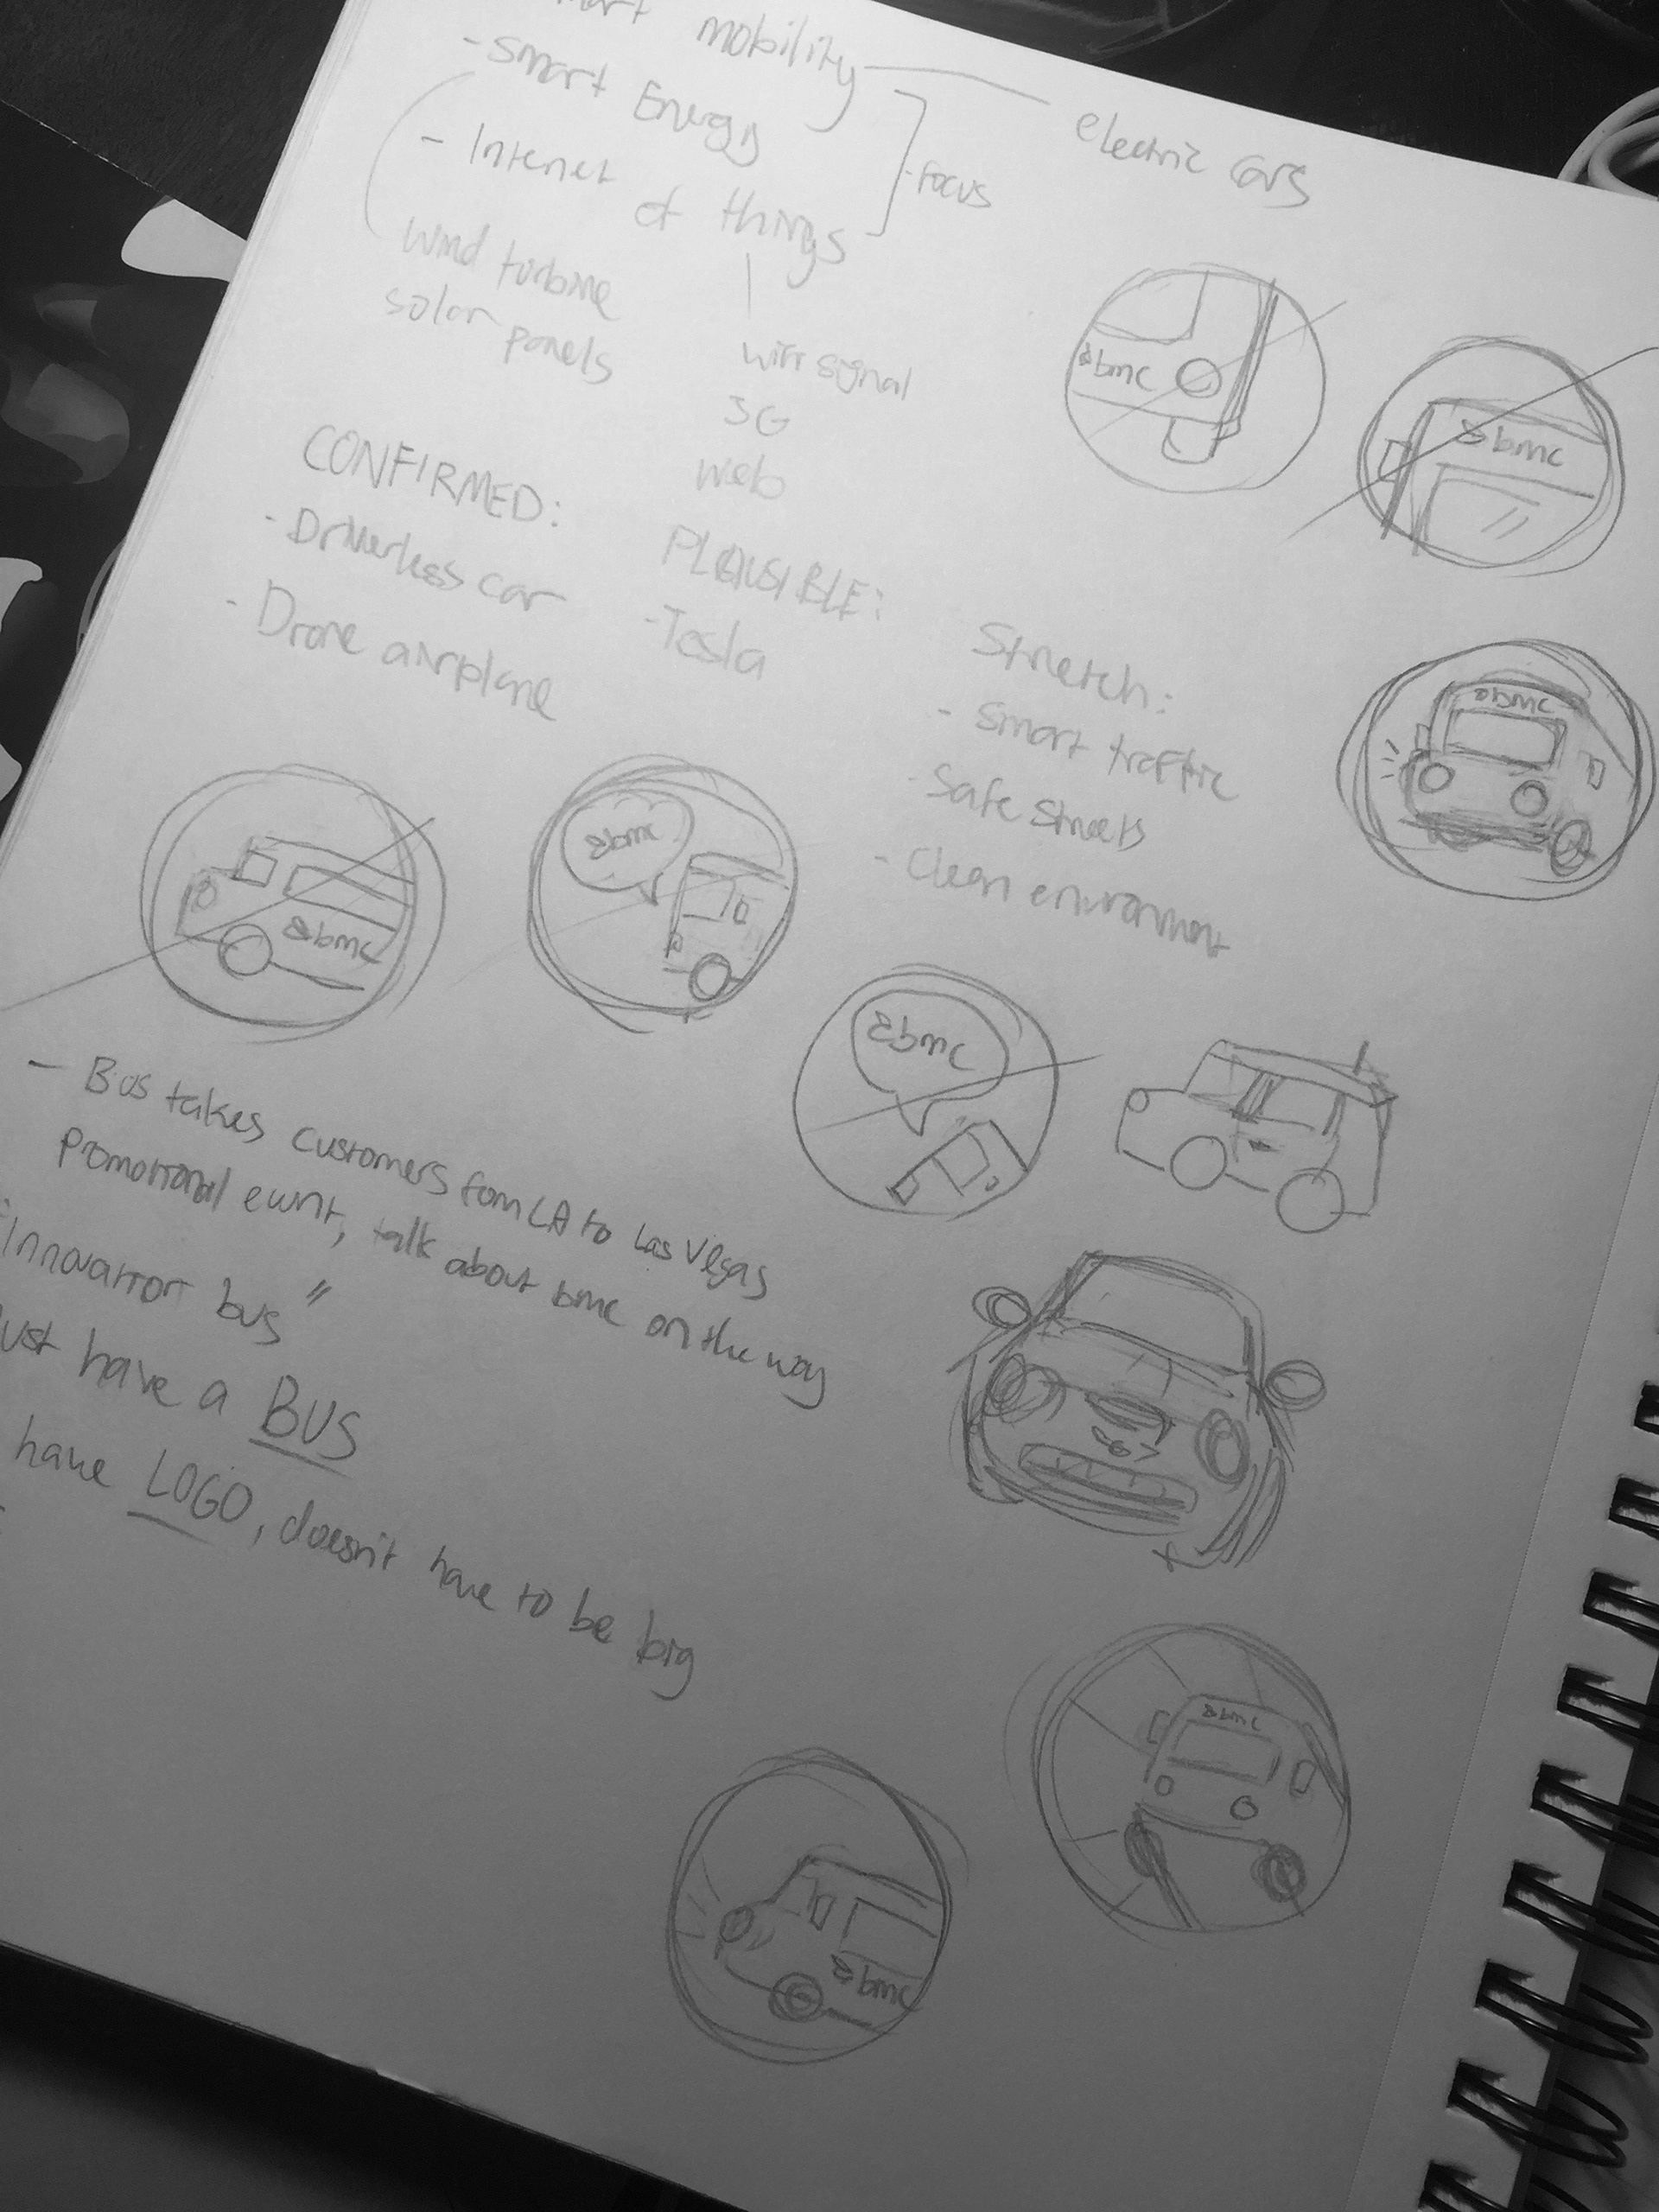 mobility
electric cars
- Smart Energy
- Internet
of things
- focus
wind turbine
solar panels
wifi signal
3G
web
CONFIRMED:
- Driverless car
- Drone airplane
PLAUSIBLE:
- Tesla
Stretch:
- Smart traffic
- Safe Streets
- Clean environment
bmc
bmc
bmc
bmc
bmc
bmc
- Bus takes customers from LA to Las Vegas
promotional event, talk about bmc on the way
"Innovation bus"
have a BUS
have LOGO, doesn't have to be big
bmc
bmc